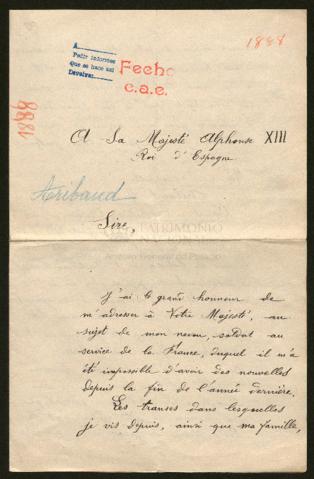 A
Pedir informes
que se hace así
Devolver
Fecho
c.a.e.
1888
1888
A Sa Majesté Alphonse XIII
Roi d'Espagne
Aribaud
Sire,
PATRIMONIO
NACIONAL
Archivo General de Palacio
J'ai le grand honneur de
m'adresser à Votre Majesté, au
sujet de mon neveu, soldat au
service de la France, duquel il m'a
été impossible d'avoir des nouvelles
depuis la fin de l'année dernière.
Les transes dans lesquelles
je vis depuis, ainsi que ma famille,